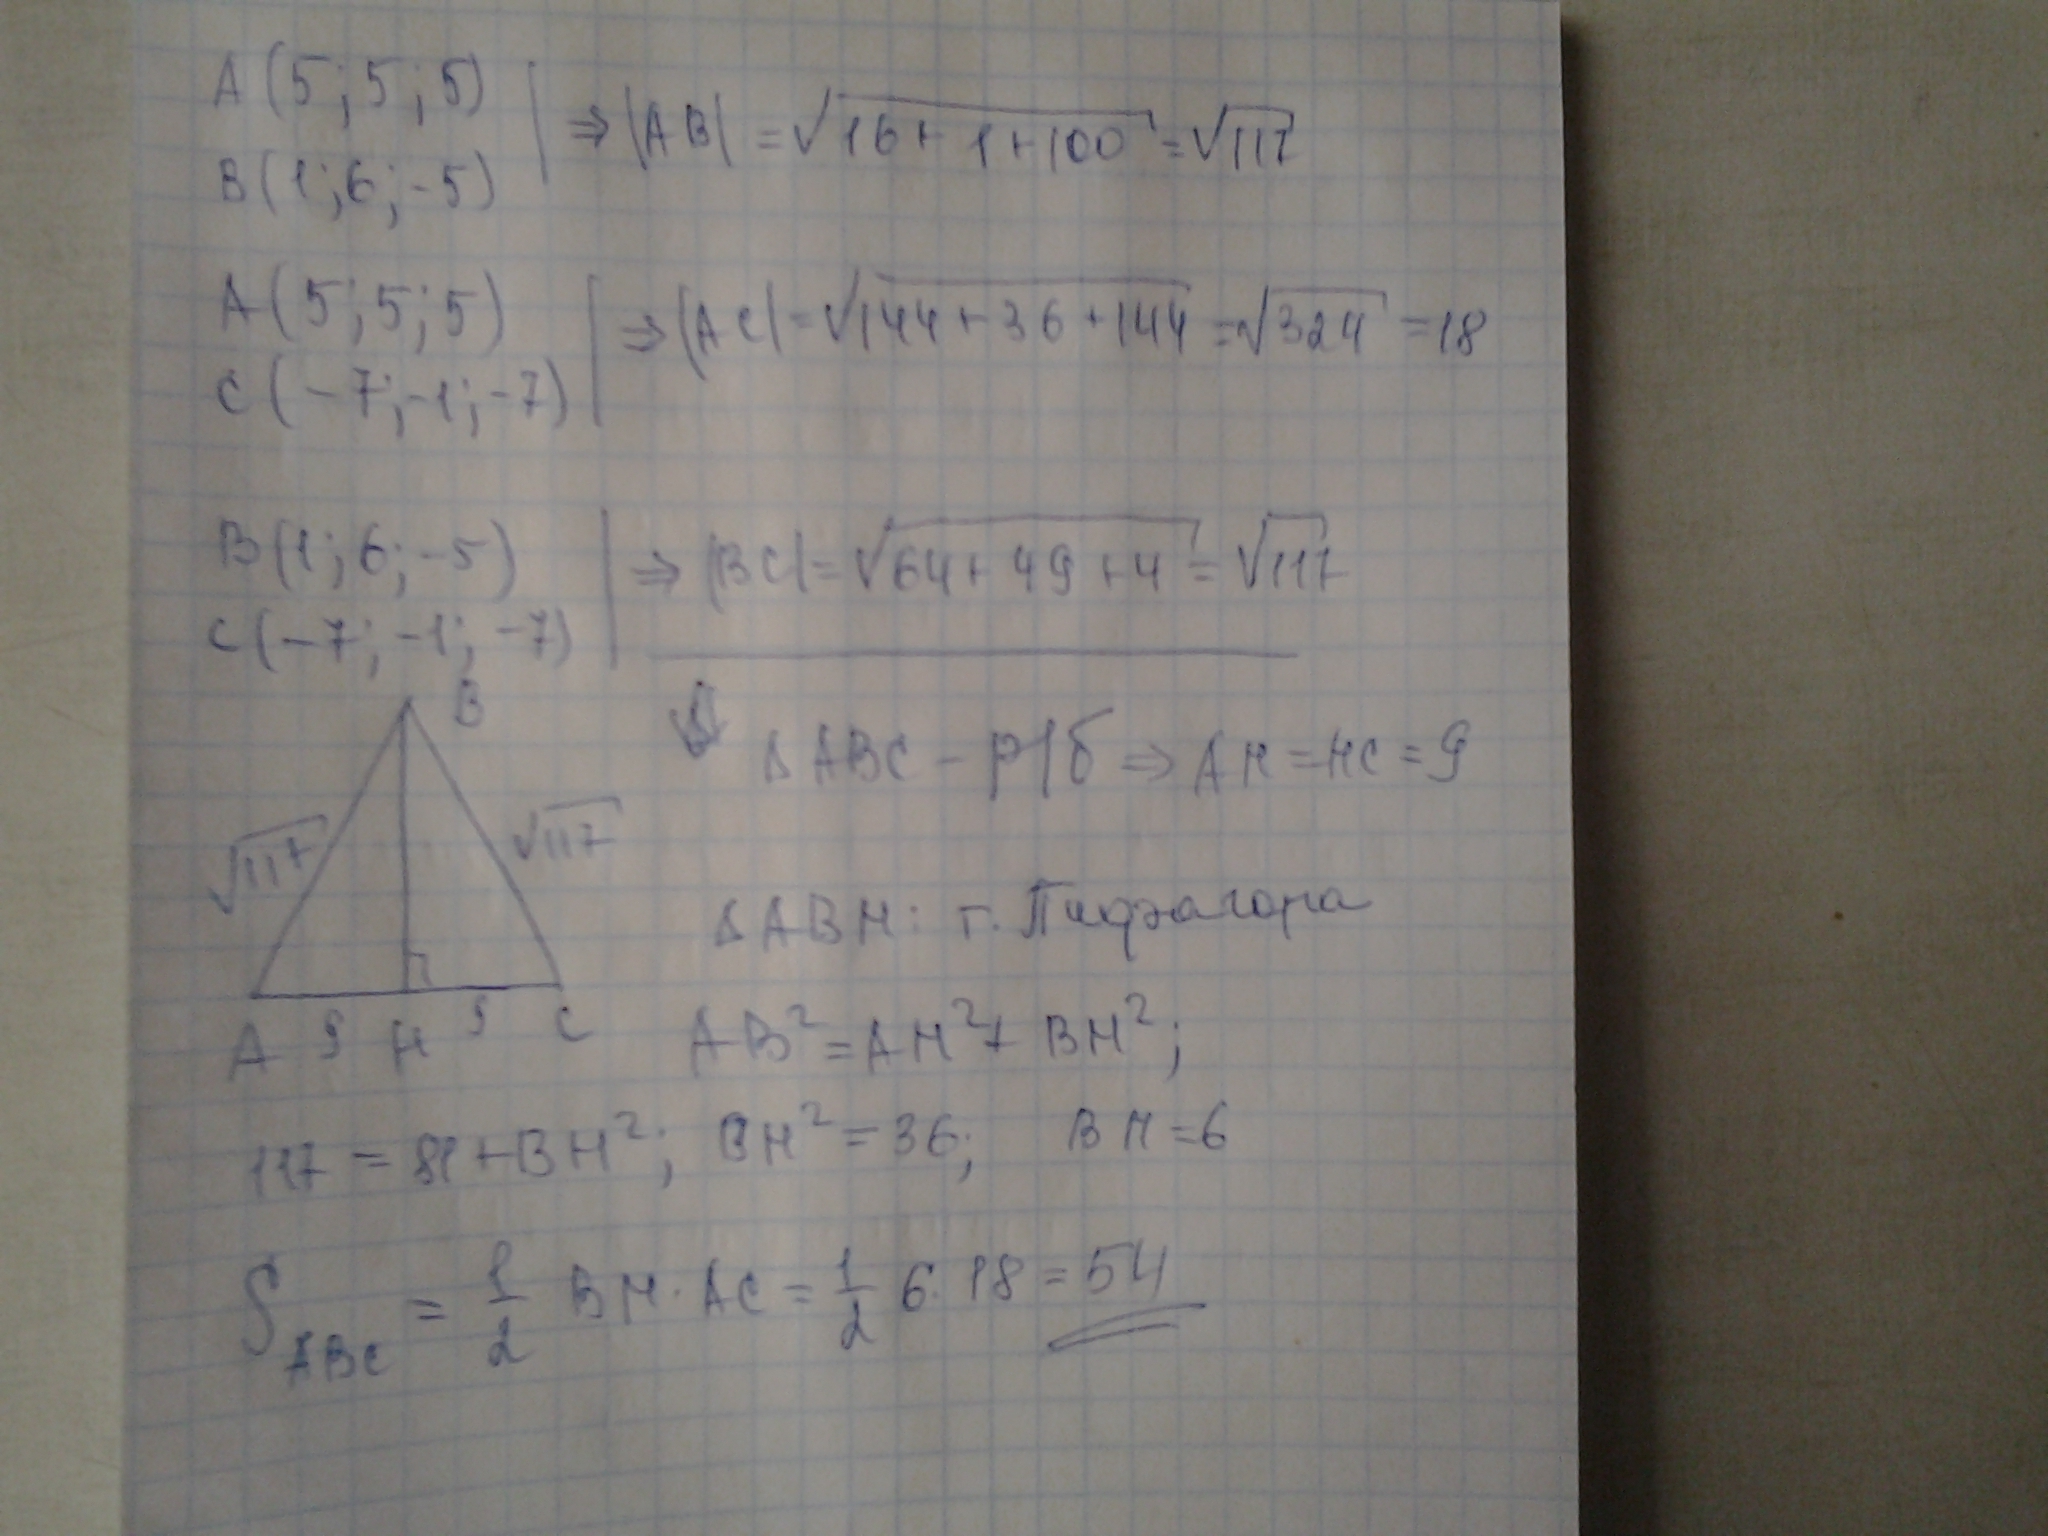 A(5;5;5)
B(1;6;-5)
⇒|AB|=√16+1+100=√117
A(5;5;5)
C(-7;-1;-7)
⇒|AC|=√144+36+144=√324=18
B(1;6;-5)
C(-7;-1;-7)
⇒|BC|=√64+49+4=√117
⇓ Δ ABC - р/б ⇒ AH=HC=9
B
√117
√117
A 9 H 9 C
Δ ABH: т. Пифагора
AB²=AH²+BH²;
117=81+BH²; BH²=36; BH=6
S ABC = 1/2 BH·AC = 1/2 6·18=54